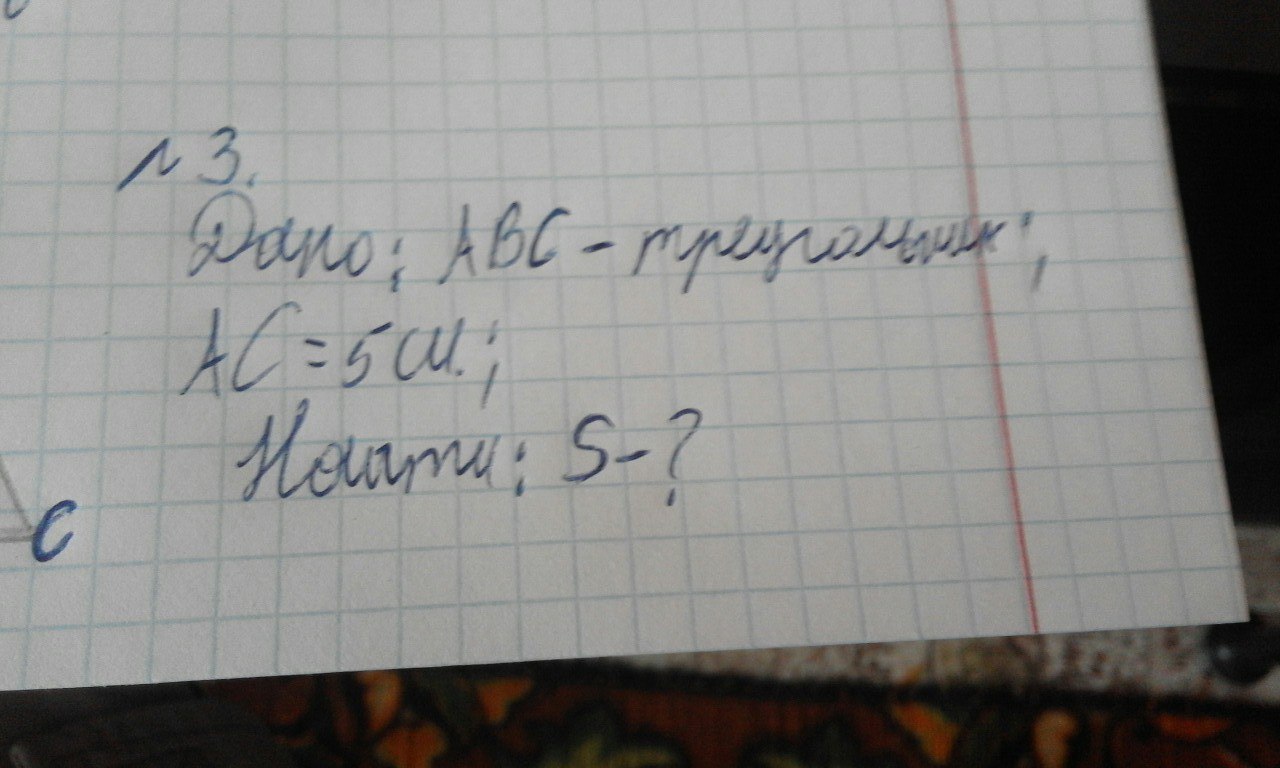 №3.
Дано: ABC - треугольник;
AC = 5 см.;
Найти: S - ?
C